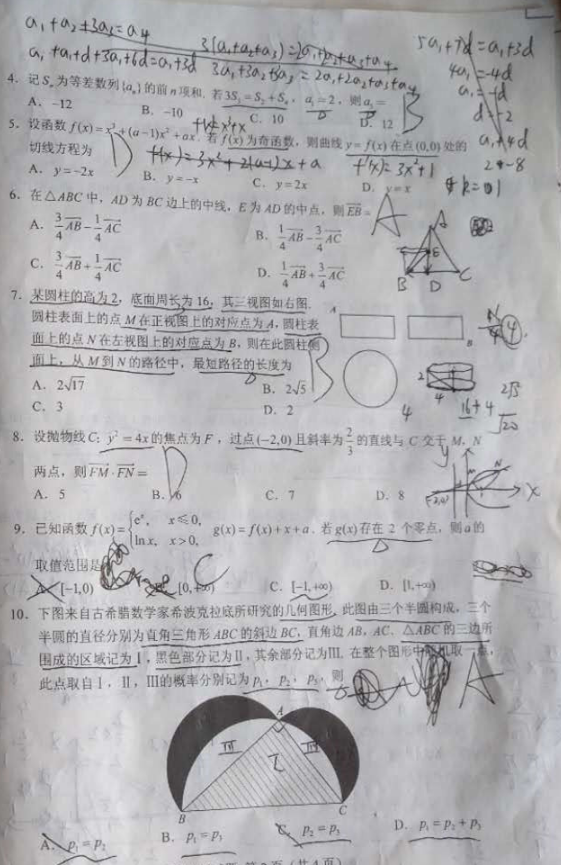 a₁+a₂+3a₃=a₄
3(a₁+a₂+a₃)=2a₁+2a₂+a₃+a₄
a₁+a₁+d+3a₁+6d=a₁+3d
3a₁+3a₂+3a₃=2a₁+2a₂+a₃+a₄
5a₁+7d=a₁+3d
4a₁=-4d
a₁=-d
d=-2
a₁+4d
2+-8
4. 记Sₙ为等差数列{aₙ}的前n项和. 若3S₃=S₂+S₄, a₁=2, 则a₅=
A. -12 B. -10 C. 10 D. 12
B
5. 设函数f(x)=x³+(a-1)x²+ax. 若f(x)为奇函数, 则曲线y=f(x)在点(0,0)处的
切线方程为
D
f(x)=x³+x
f'(x)=3x²+2(a-1)x+a
f'(x)=3x²+1
A. y=-2x B. y=-x C. y=2x D. y=x
6. 在△ABC中, AD为BC边上的中线, E为AD的中点, 则EB=
A
A. 3/4 AB-1/4 AC B. 1/4 AB-3/4 AC
C. 3/4 AB+1/4 AC D. 1/4 AB+3/4 AC
A
E
B D C
7. 某圆柱的高为2, 底面周长为16, 其三视图如右图.
圆柱表面上的点M在正视图上的对应点为A, 圆柱表
面上的点N在左视图上的对应点为B, 则在此圆柱侧
面上, 从M到N的路径中, 最短路径的长度为
B
A. 2√17 B. 2√5
C. 3 D. 2
A
B
2
4
4
16+4
2√5
√20
8. 设抛物线C: y²=4x的焦点为F, 过点(-2,0)且斜率为2/3的直线与C交于M, N
两点, 则FM·FN=
D
A. 5 B. 6 C. 7 D. 8
y
N
x
(-2,0)
9. 已知函数f(x)={eˣ, x≤0,
ln x, x>0, g(x)=f(x)+x+a. 若g(x)存在2个零点, 则a的
取值范围是
C
A. [-1,0) [0,+∞) C. [-1,+∞) D. [1,+∞)
10. 下图来自古希腊数学家希波克拉底所研究的几何图形, 此图由三个半圆构成, 三个
半圆的直径分别为直角三角形ABC的斜边BC, 直角边AB, AC. △ABC的三边所
围成的区域记为I, 黑色部分记为II, 其余部分记为III. 在整个图形中随机取一点,
此点取自I, II, III的概率分别记为p₁, p₂, p₃, 则
A
A
III I III
B C
A. p₁=p₂ B. p₁=p₃ C. p₂=p₃ D. p₁=p₂+p₃